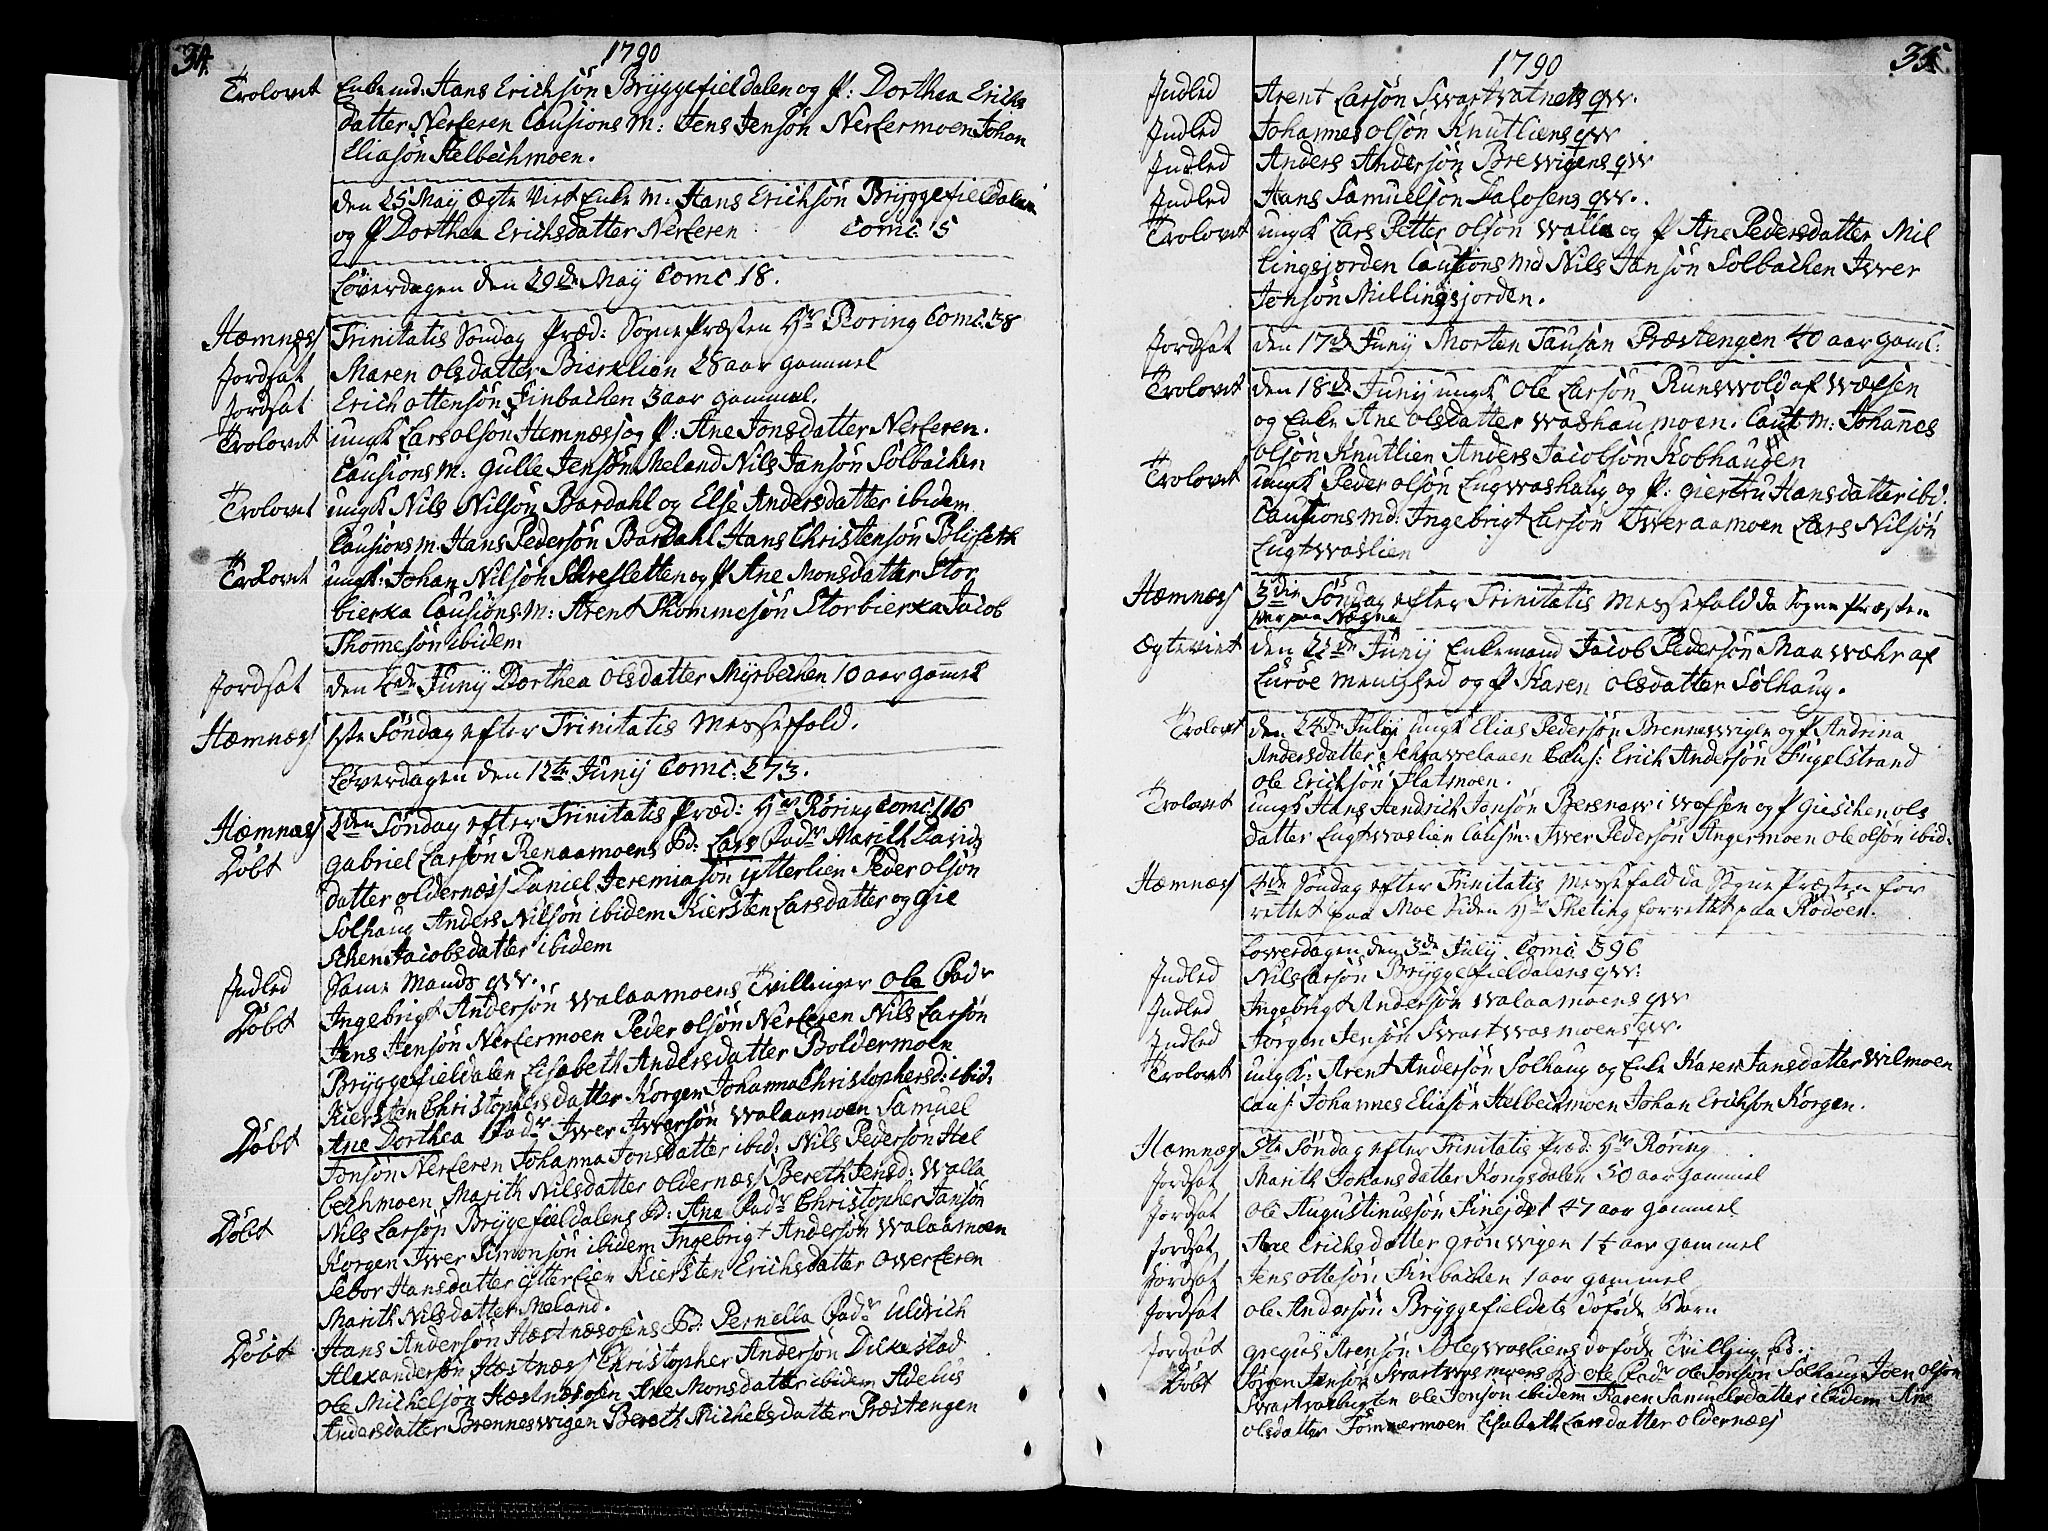 34.
1790
Trolovet Enkemd: Hans Erichsön Bryggefieldalen og P: Dorthea Erichs
datter Nerleren Causions M: Jens Jensön Nerlermoen Johan
Eliasön Helbechmoen.
den 25 May Ægte Viet Enke M: Hans Erichsön Bryggefieldalen
og P Dorthea Erichsdatter Nerleren Comc. 5
Löverdagen den 29de May Comc. 18.
Hæmnæs Trinitatis Söndag Præd: Sogne Præsten Hr Röring Comc: 38
Jordsat Maren Olsdatter Bierklien 28 aar gammel
Jordsat Erich Ottensön Finbachen 3 aar gammel.
Trolovet ungk Lars Olsön Hemnæs og P: Ane Jonsdatter Nerleren.
Causions M: Gulle Jensön Meland Nils Jansön Solbachen
Trolovet ungk Nils Nilsön Bardahl og Else Andersdatter ibidem
Causions M. Hans Pedersön Bardahl Hans Christensön
Trolovet ungk: Johan Nilsön og P Ane Monsdatter Stor
bierka Causions M: Arent Thommesön Storbierka Jacob
Thomesön ibidem
Jordsat den 4de Junij Dorthea Olsdatter Myrbechen 10 aar gamel
Hæmnæs 1ste Söndag efter Trinitatis Messefald.
Löverdagen den 12te Junij Comc: 273.
Hæmnæs 2den Söndag efter Trinitatis Præd: Hr Röring Comc: 116
Döbt Gabriel Larsön Renaamoens Bd: Lars Fadr Marith Davids
datter Oldernæs Daniel Jeremiasön Ytterlien Peder Olsön
Solhaug Anders Nilsön ibidem Kiersten Larsdatter og Gie
schen Jacobsdatter ibidem
Indled Same Mands qvv.
Döbt Ingebrigt Andersön Walaamoens Tvillinger Ole Fadr
Jens Jensön Nerlermoen Peder Olsön Nerleren Nils Larsön
Bryggefieldalen Lisabeth Andersdatter Boldermoen
Kiersten Christophersdatter Korgen Johanna Christophersd: ibid:
Döbt Ane Dorthea Fadr Iwer Iwersön Walaamoen Samuel
Jonsön Nerleren Johanna Jonsdatter ibid: Nils Pedersön Hel
bechmoen Marith Nilsdatter Oldernæs Bereth Jensd: Walla
Döbt Nils Larsön Bryggefieldalens Bd: Ane Fadr Christopher Jansön
Korgen Iwer Simonsön ibidem Ingebrigt Andersön Walaamoen
Sebor Hansdatter Ytterlien Kiersten Erichsdatter Owerleren
Marith Nilsdatter Meland.
Döbt Hans Andersön Hæstnæsosens Bd: Pernella Fadr Uldrich
Alexandersön Hæstnæs Christopher Andersön Dilkestad
Ole Michelsön Hæstnæsosen Ane Monsdatter ibidem Adelus
Andersdatter Brenneswigen Bereth Michelsdatter Præstengen
35.
1790
Indled Arent Larsön Swartvatnets qvv.
Indled Johannes Olsön Knutliens qvv
Indled Anders Andersön Brewigens qvv
Indled Hans Samuelsön Dalosens qvv.
Trolovet ungk Lars Petter Olsön Walla og P Ane Pedersdatter Mil
lingsjorden Causions Md Nils Jansön Solbachen Iwer
Jonsön Millingsjorden.
Jordsat den 17de Junij Morten Præstengen 40 aar gaml:
Trolovet den 18de Junij ungk Ole Larsön Runswold af Wefsen
og Enke Ane Olsdatter Washaugmoen. Caut M: Johannes
Olsön Knutlien Anders Jacobsön Kobhaugen
Trolovet ungk Peder Olsön Lugwashaug og P: Giertru Hansdatter ibd.
Causions Md: Ingebrigt Larsön Tweraamoen Lars Nilsön
Lugtwaslien
Hæmnæs 3die Söndag efter Trinitatis Messefald da Sogne Præsten
var paa Næsna
Ægteviet den 22de Junij Enkemand Jacob Pedersön Maawæhr af
Luröe Menighed og P Karen Olsdatter Solhaug.
Trolovet den 24de Julij ungk Elias Pedersön Brenneswigen og P Andrina
Andersdatter Caus: Erich Andersön Figelstrand
Ole Erichsön Flatmoen.
Trolovet ungk Hans Hendrich Jonsön i Wefsen og P Gieschen Ols
datter Lugtwaslien Causm: Iwer Pedersön Angermoen Ole Olsön ibid:
Hæmnæs 4de Söndag efter Trinitatis Messefald da Sogne Præsten for
rettet paa Moe siden Hr forrettet paa Rödöen.
Löwerdagen den 3de July. Comc. 596
Indled Nils Larsön Bryggefieldalens qvv:
Indled Ingebrigt Andersön Walaamoens qvv
Indled Jörgen Jensön Swartwasmoens qvv.
Trolovet ungk: Arent Andersön Solhaug og Enke Karen Jansdatter Wilmoen
Caus: Johannes Eliasön Helbechmoen Johan Erichsön Korgen.
Hæmnæs 5te Söndag efter Trinitatis Præd: Hr Röring
Jordsat Marith Johansdatter Kongsdalen 50 aar gammel
Jordsat Ole Augustinussön Finejdet 47 aar gammel
Jordsat Ane Erichsdatter Grönwigen 1½ aar gammel
Jordsat Jens Ottesön Finbachen 1 aar gammel
Jordsat Ole Andersön Bryggefieldets döföde Barn
Jordsat Gregus Arensön Blegwasliens döföde Tvilling B:
Döbt Jörgen Jensön Swartwasmoens Bd Ole Fadr Ole Jonsön Solhaug Joen Olsön
Ole Jonsön ibidem Karen Samuelsdatter ibidem Ane
Olsdatter Tömmermoen Lisabeth Larsdatter Oldernæs